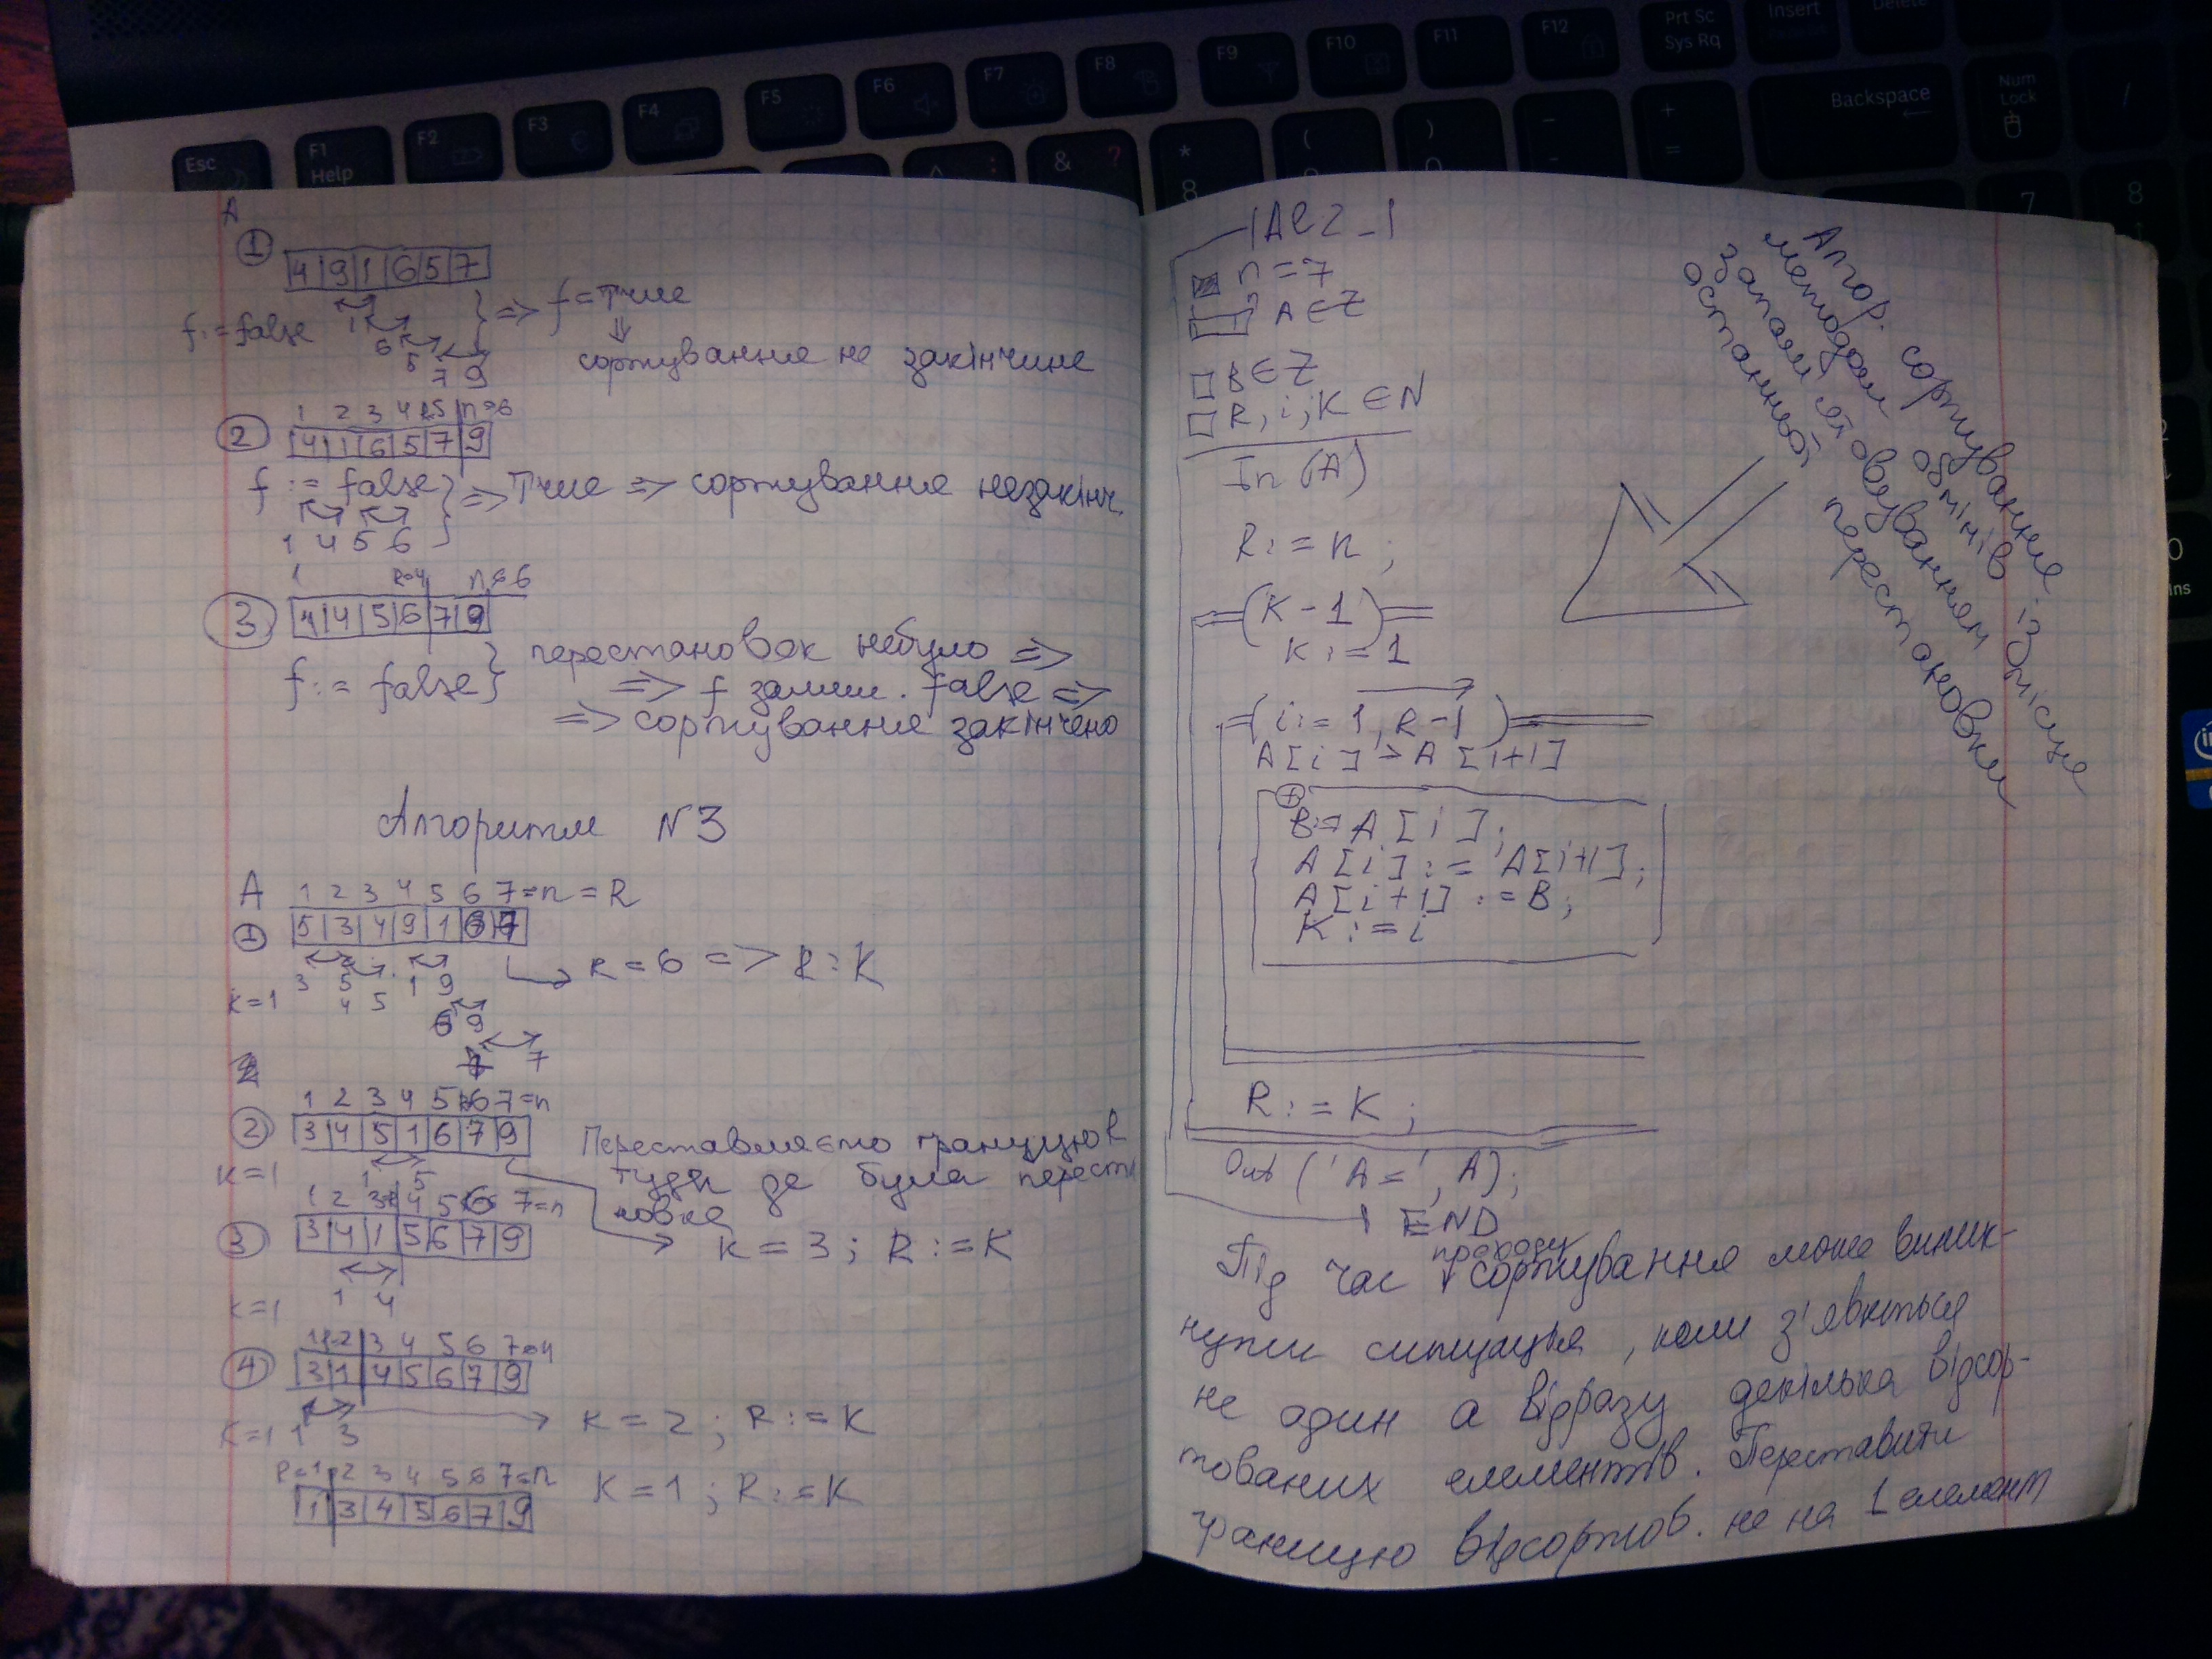 Esc
F1
Help
F2
F3
F4
F5
F6
F7
F8
F9
F10
F11
F12
Prt Sc
Sys Rq
Insert
Delete
Backspace
Num
Lock
A
① 4 9 1 6 5 7
f:=false
1
6
5
7 9
=> f = True
сортування не закінчине
1 2 3 4 R5 n=6
② 4 1 6 5 7 9
f := false => True => сортування незакінч.
1 4 5 6
1 R=4 n=6
③ 1 4 5 6 7 9
f := false
перестановок небуло =>
=> f залиш. false =>
=> сортування закінчено
Алгоритм N3
A 1 2 3 4 5 6 7=n=R
① 5 3 4 9 1 6 7
R=6 => R:K
3 5 1 9
K=1 4 5
6 9
7
1 2 3 4 5 6 7=n
② 3 4 5 1 6 7 9
K=1
1 5
Переставляємо границю R
туди де була переста
новка
K=3; R:=K
1 2 3 4 5 6 7=n
③ 3 4 1 5 6 7 9
K=1 1 4
1 2 3 4 5 6 7=n
④ 3 1 4 5 6 7 9
K=1 1 3
K=2; R:=K
R=1 2 3 4 5 6 7=n
1 3 4 5 6 7 9
K=1; R:=K
Al2_1
n=7
A∈Z
B∈Z
R, i, K ∈N
In (A)
R:=n;
(K-1)
K:=1
(i:=1, R-1)
A[i]>A[i+1]
+
B:=A[i];
A[i]:=A[i+1];
A[i+1]:=B;
K:=i
R:=K;
Out ('A=', A);
END
Алгор. сортування
методом обмінів із
запам'ятовуванням місце
останньої перестановки
проходу
Під час сортування може виник-
нути ситуація, коли з'явиться
не один а відразу декілька відсор-
тованих елементів. Переставити
границю відсортов. не на 1 елемент